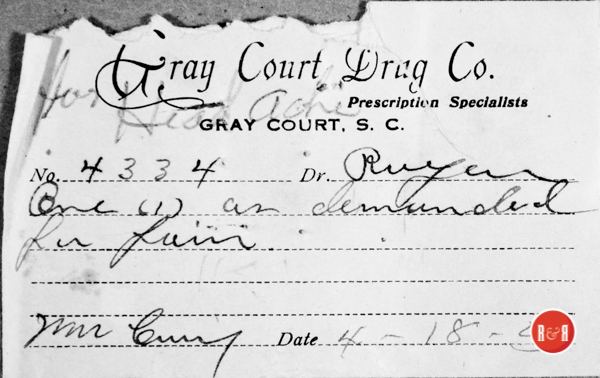 Gray Court Drug Co.
For
Head Ache
Prescription Specialists
GRAY COURT, S. C.
No. 4334 Dr.
One (1) as demanded
for pain.
Date 4-18-
R&R